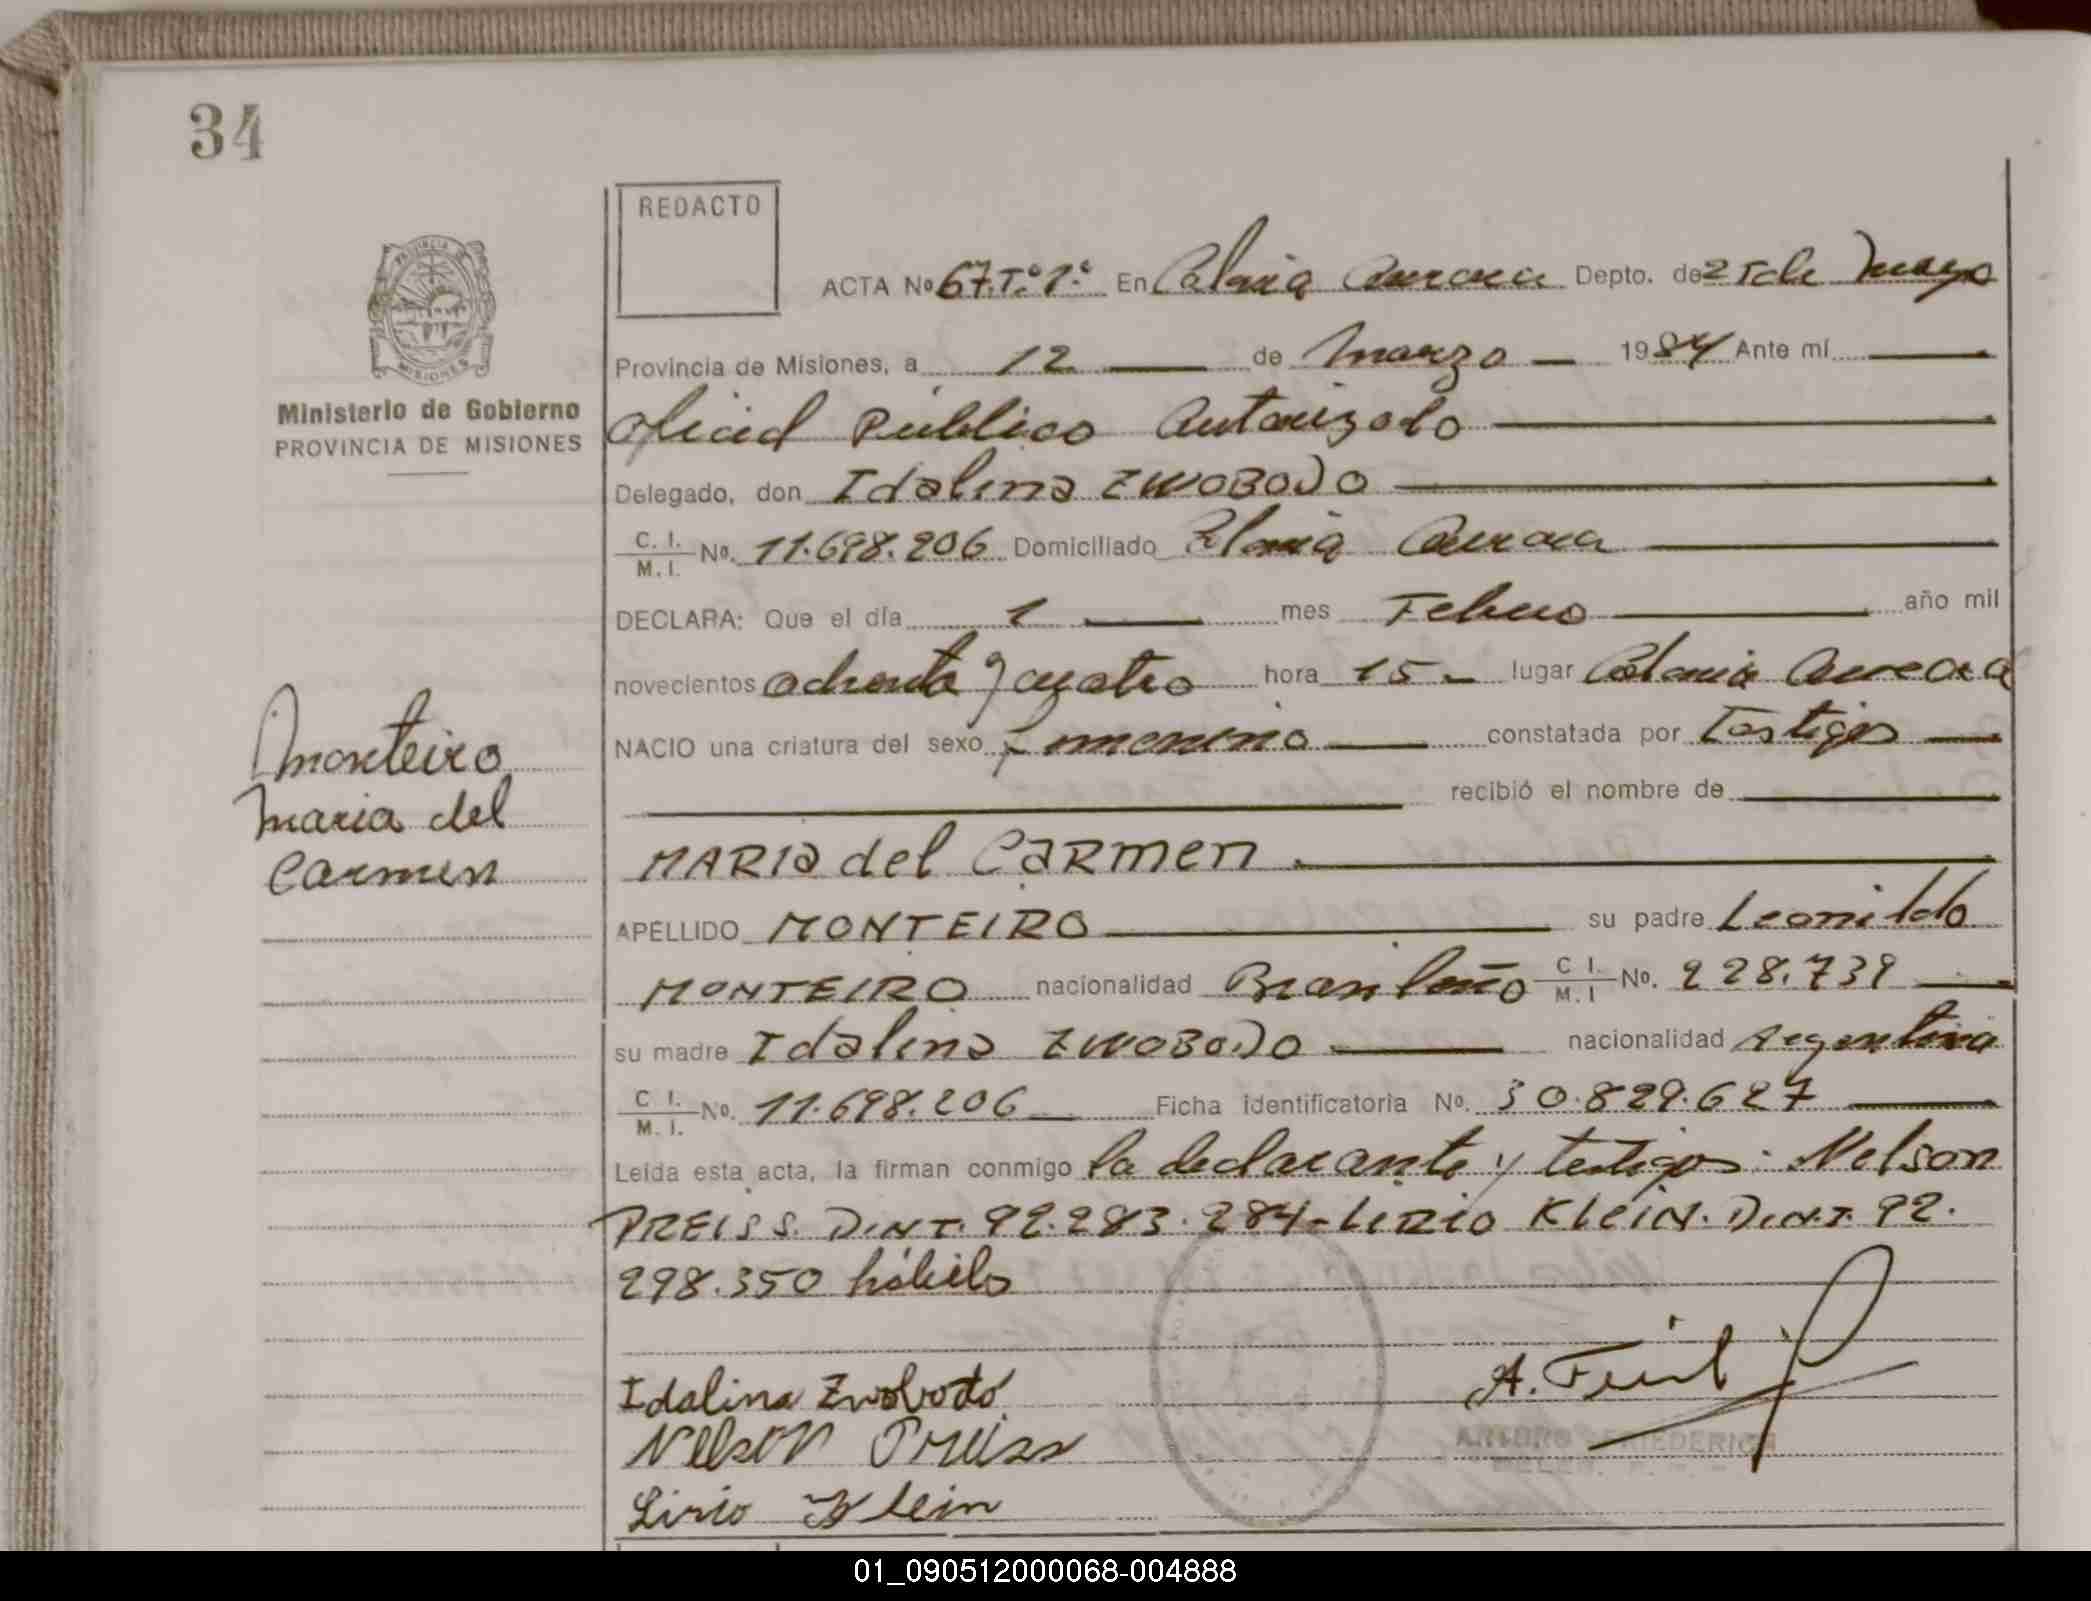 34
REDACTO
ACTA Nº 67.Tº.1º. En Colonia Aurora Depto. de 25 de Mayo
Provincia de Misiones, a 12 de Marzo 1984 Ante mí
Oficial Público Autorizado
Delegado, don Idalina ZWOBODO
C. I. M. I. Nº. 11.698.206 Domiciliado Colonia Aurora
DECLARA: Que el día 1 mes Febrero año mil
novecientos ochenta y cuatro hora 15 lugar Colonia Aurora
NACIO una criatura del sexo femenino constatada por Testigos
recibió el nombre de
MARIA del CARMEN
APELLIDO MONTEIRO su padre Leonildo
MONTEIRO nacionalidad Brasileño C I. M. I Nº. 228.739
su madre Idalina ZWOBODO nacionalidad Argentina
C I. M. I. Nº. 11.698.206 Ficha identificatoria Nº. 30.829.627
Leida esta acta, la firman conmigo la declarante y testigos: Nelson
PREISS. D.N.I. 92.283.284-LIRIO KLEIN. D.N.I. 92.
298.350 hábiles
Idalina Zwobodo
Nelson Preiss
Lirio Klein
A. Fried
ARTURO FRIEDERICH
PROVINCIA DE
MISIONES
Ministerio de Gobierno
PROVINCIA DE MISIONES
Monteiro
Maria del
Carmen
01_090512000068-004888